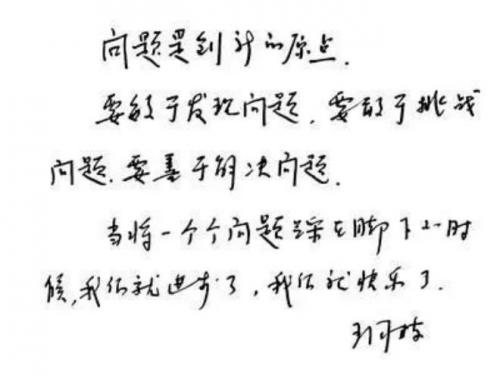 问题是创新的原点.
要敏于发现问题，要敢于挑战
问题.要善于解决问题.
当将一个个问题踩在脚下的时
候,我们就进步了,我们就快乐了.